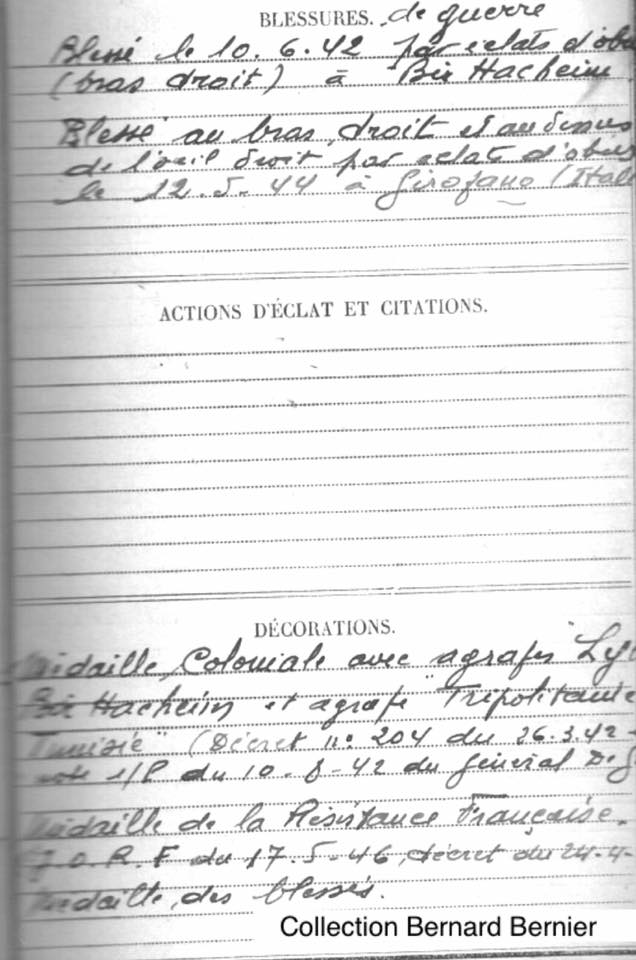 BLESSURES. de guerre
Blessé le 10.6.42 par éclats d'obu
(bras droit) à Bir Hacheim
Blessé au bras droit et au dessus
de l'oeil droit par éclat d'obus
le 12.5.44 à Girofano (Itali
ACTIONS D'ÉCLAT ET CITATIONS.
DÉCORATIONS.
Médaille Coloniale avec agrafes "Ly
Bir Hacheim et agrafe "Tripolitanie
Tunisie" (Décret n° 204 du 26.3.42 -
note 1/P du 10-8-42 du Général De G
Médaille de la Résistance Française.
J.O.R.F du 17.5.46, décret du 24-4-
Médaille des blessés.
Collection Bernard Bernier